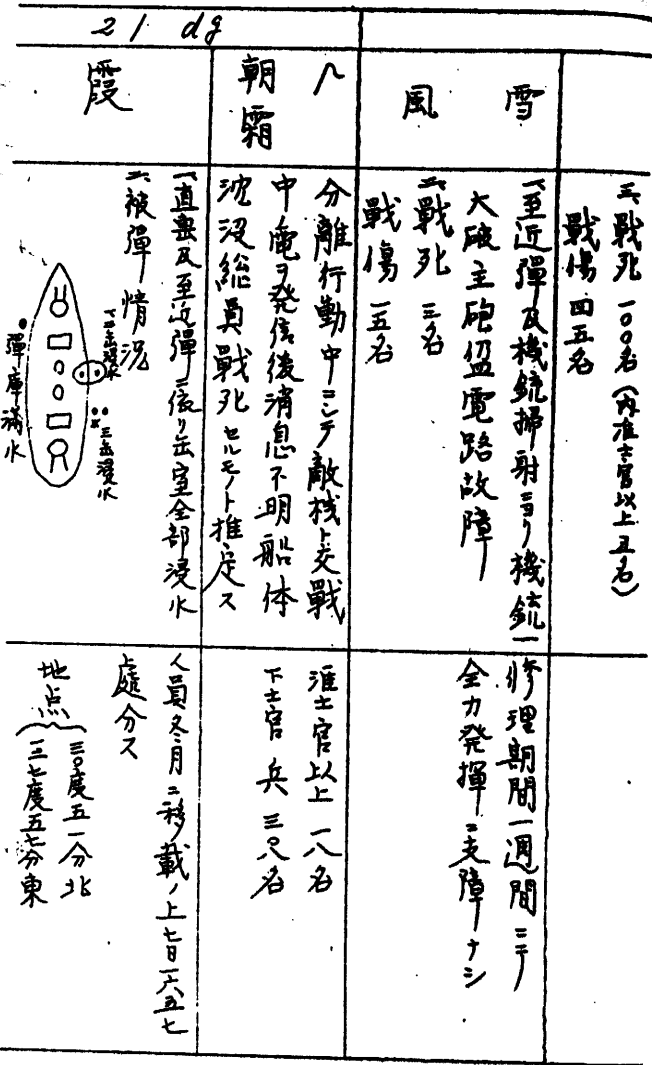 三、戰死 一〇〇名（内准士官以上五名）
戰傷 四五名
雪風
一、至近彈及機銃掃射ニヨリ機銃一
大破主砲盤電路故障
二、戰死 三名
戰傷 一五名
修理期間一週間ニテ
全力発揮ニ支障ナシ
21dg
朝霜
分離行動中ニシテ敵機ト交戰
中電ヲ発信後消息不明船体
沈没総員戰死セルモノト推定ス
准士官以上 一八名
下士官兵 三〇八名
霞
一、直撃及至近彈ニ依リ缶室全部浸水
二、被彈情況
三缶浸水
彈庫満水
人員冬月ニ移載ノ上七日一六五七
處分ス
地点
三〇度五一分北
一二七度五七分東